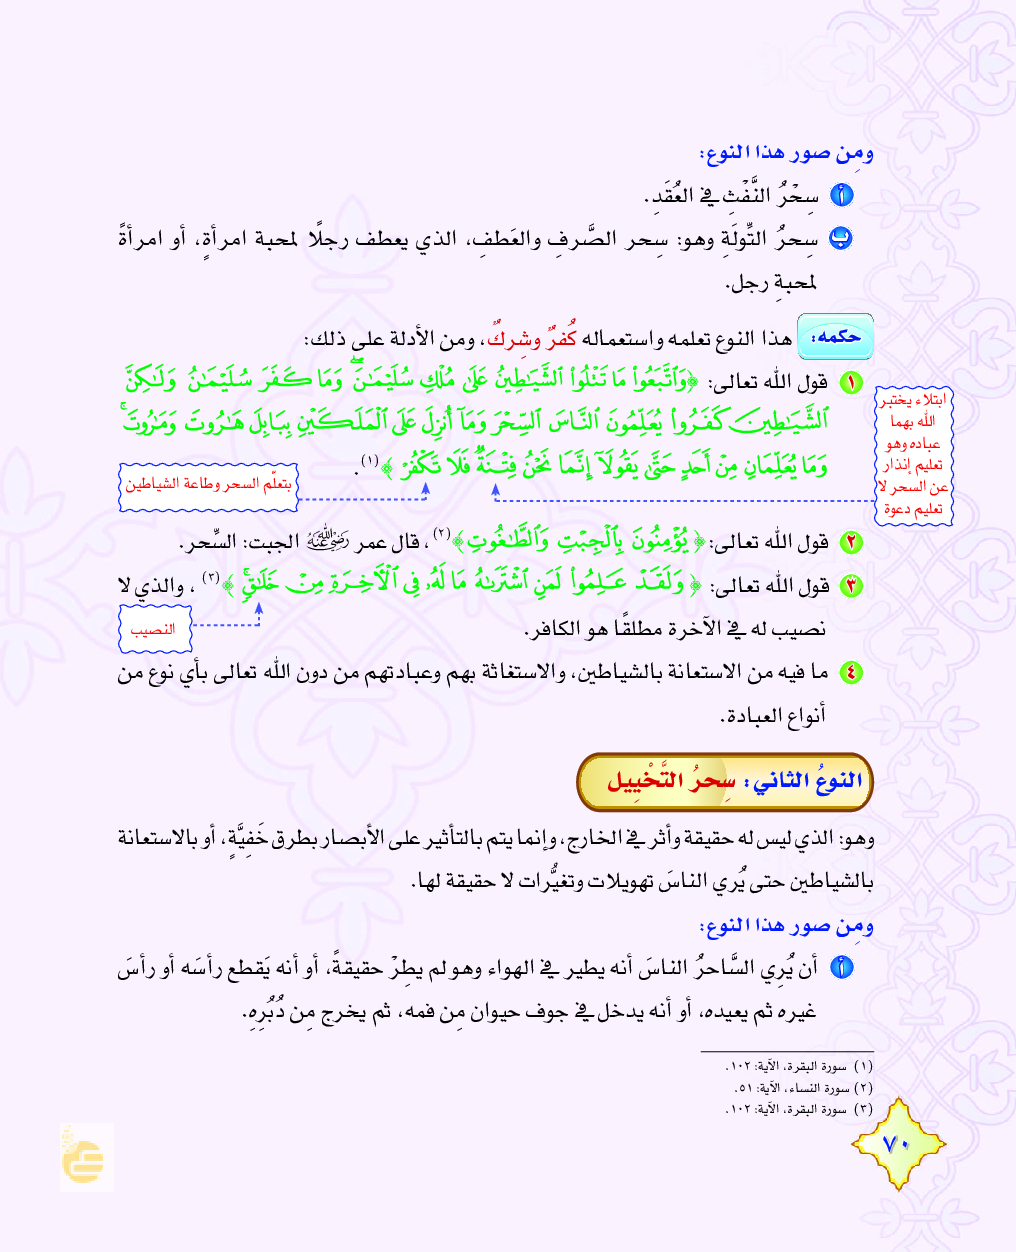 ومِن صور هذا النوع:
أ سِحْرُ النَّفْثِ في العُقَدِ.
ب سِحرُ التِّولَةِ وهو: سِحر الصَّرفِ والعَطفِ، الذي يعطف رجلًا لمحبة امرأةٍ، أو امرأةً
لمحبةِ رجل.
حكمه: هذا النوع تعلمه واستعماله كُفرٌ وشِركٌ، ومن الأدلة على ذلك:
١ قول الله تعالى: ﴿وَٱتَّبَعُوا۟ مَا تَتْلُوا۟ ٱلشَّيَـٰطِينُ عَلَىٰ مُلْكِ سُلَيْمَـٰنَ ۖ وَمَا كَفَرَ سُلَيْمَـٰنُ وَلَـٰكِنَّ
ٱلشَّيَـٰطِينَ كَفَرُوا۟ يُعَلِّمُونَ ٱلنَّاسَ ٱلسِّحْرَ وَمَآ أُنزِلَ عَلَى ٱلْمَلَكَيْنِ بِبَابِلَ هَـٰرُوتَ وَمَـٰرُوتَ ۚ
وَمَا يُعَلِّمَانِ مِنْ أَحَدٍ حَتَّىٰ يَقُولَآ إِنَّمَا نَحْنُ فِتْنَةٌ فَلَا تَكْفُرْ ﴾(١).
ابتلاء يختبر
الله بهما
عباده وهو
تعليم إنذار
عن السحر لا
تعليم دعوة
بتعلّم السحر وطاعة الشياطين
٢ قول الله تعالى: ﴿ يُؤْمِنُونَ بِٱلْجِبْتِ وَٱلطَّـٰغُوتِ ﴾(٢)، قال عمر رضي الله عنه الجبت: السِّحر.
٣ قول الله تعالى: ﴿ وَلَقَدْ عَلِمُوا۟ لَمَنِ ٱشْتَرَىٰهُ مَا لَهُۥ فِى ٱلْـَٔاخِرَةِ مِنْ خَلَـٰقٍ ۚ ﴾(٣)، والذي لا
نصيب له في الآخرة مطلقًا هو الكافر.
النصيب
٤ ما فيه من الاستعانة بالشياطين، والاستغاثة بهم وعبادتهم من دون الله تعالى بأي نوع من
أنواع العبادة.
النوعُ الثاني: سِحرُ التَّخْيِيل
وهو: الذي ليس له حقيقة وأثر في الخارج، وإنما يتم بالتأثير على الأبصار بطرق خَفِيَّةٍ، أو بالاستعانة
بالشياطين حتى يُري الناسَ تهويلات وتغيُّرات لا حقيقة لها.
ومِن صور هذا النوع:
أ أن يُرِي السَّاحرُ الناسَ أنه يطير في الهواء وهو لم يطِرْ حقيقةً، أو أنه يَقطع رأسَه أو رأسَ
غيره ثم يعيده، أو أنه يدخل في جوف حيوان مِن فمه، ثم يخرج مِن دُبُرِهِ.
(١) سورة البقرة، الآية: ١٠٢.
(٢) سورة النساء، الآية: ٥١.
(٣) سورة البقرة، الآية: ١٠٢.
٧٠